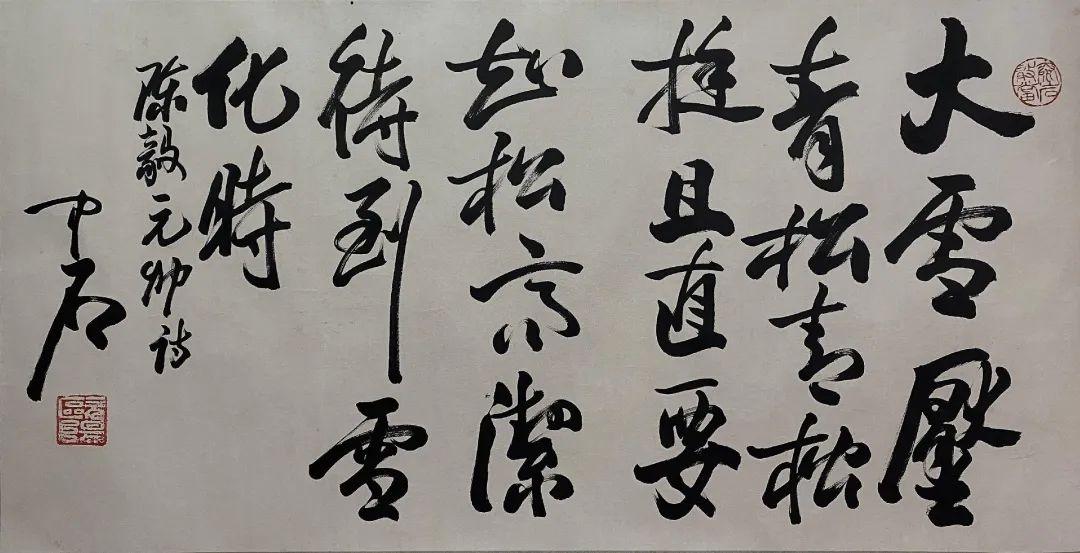 大雪壓
青松青松
挺且直要
知松高潔
待到雪
化時
陳毅元帥詩
中石